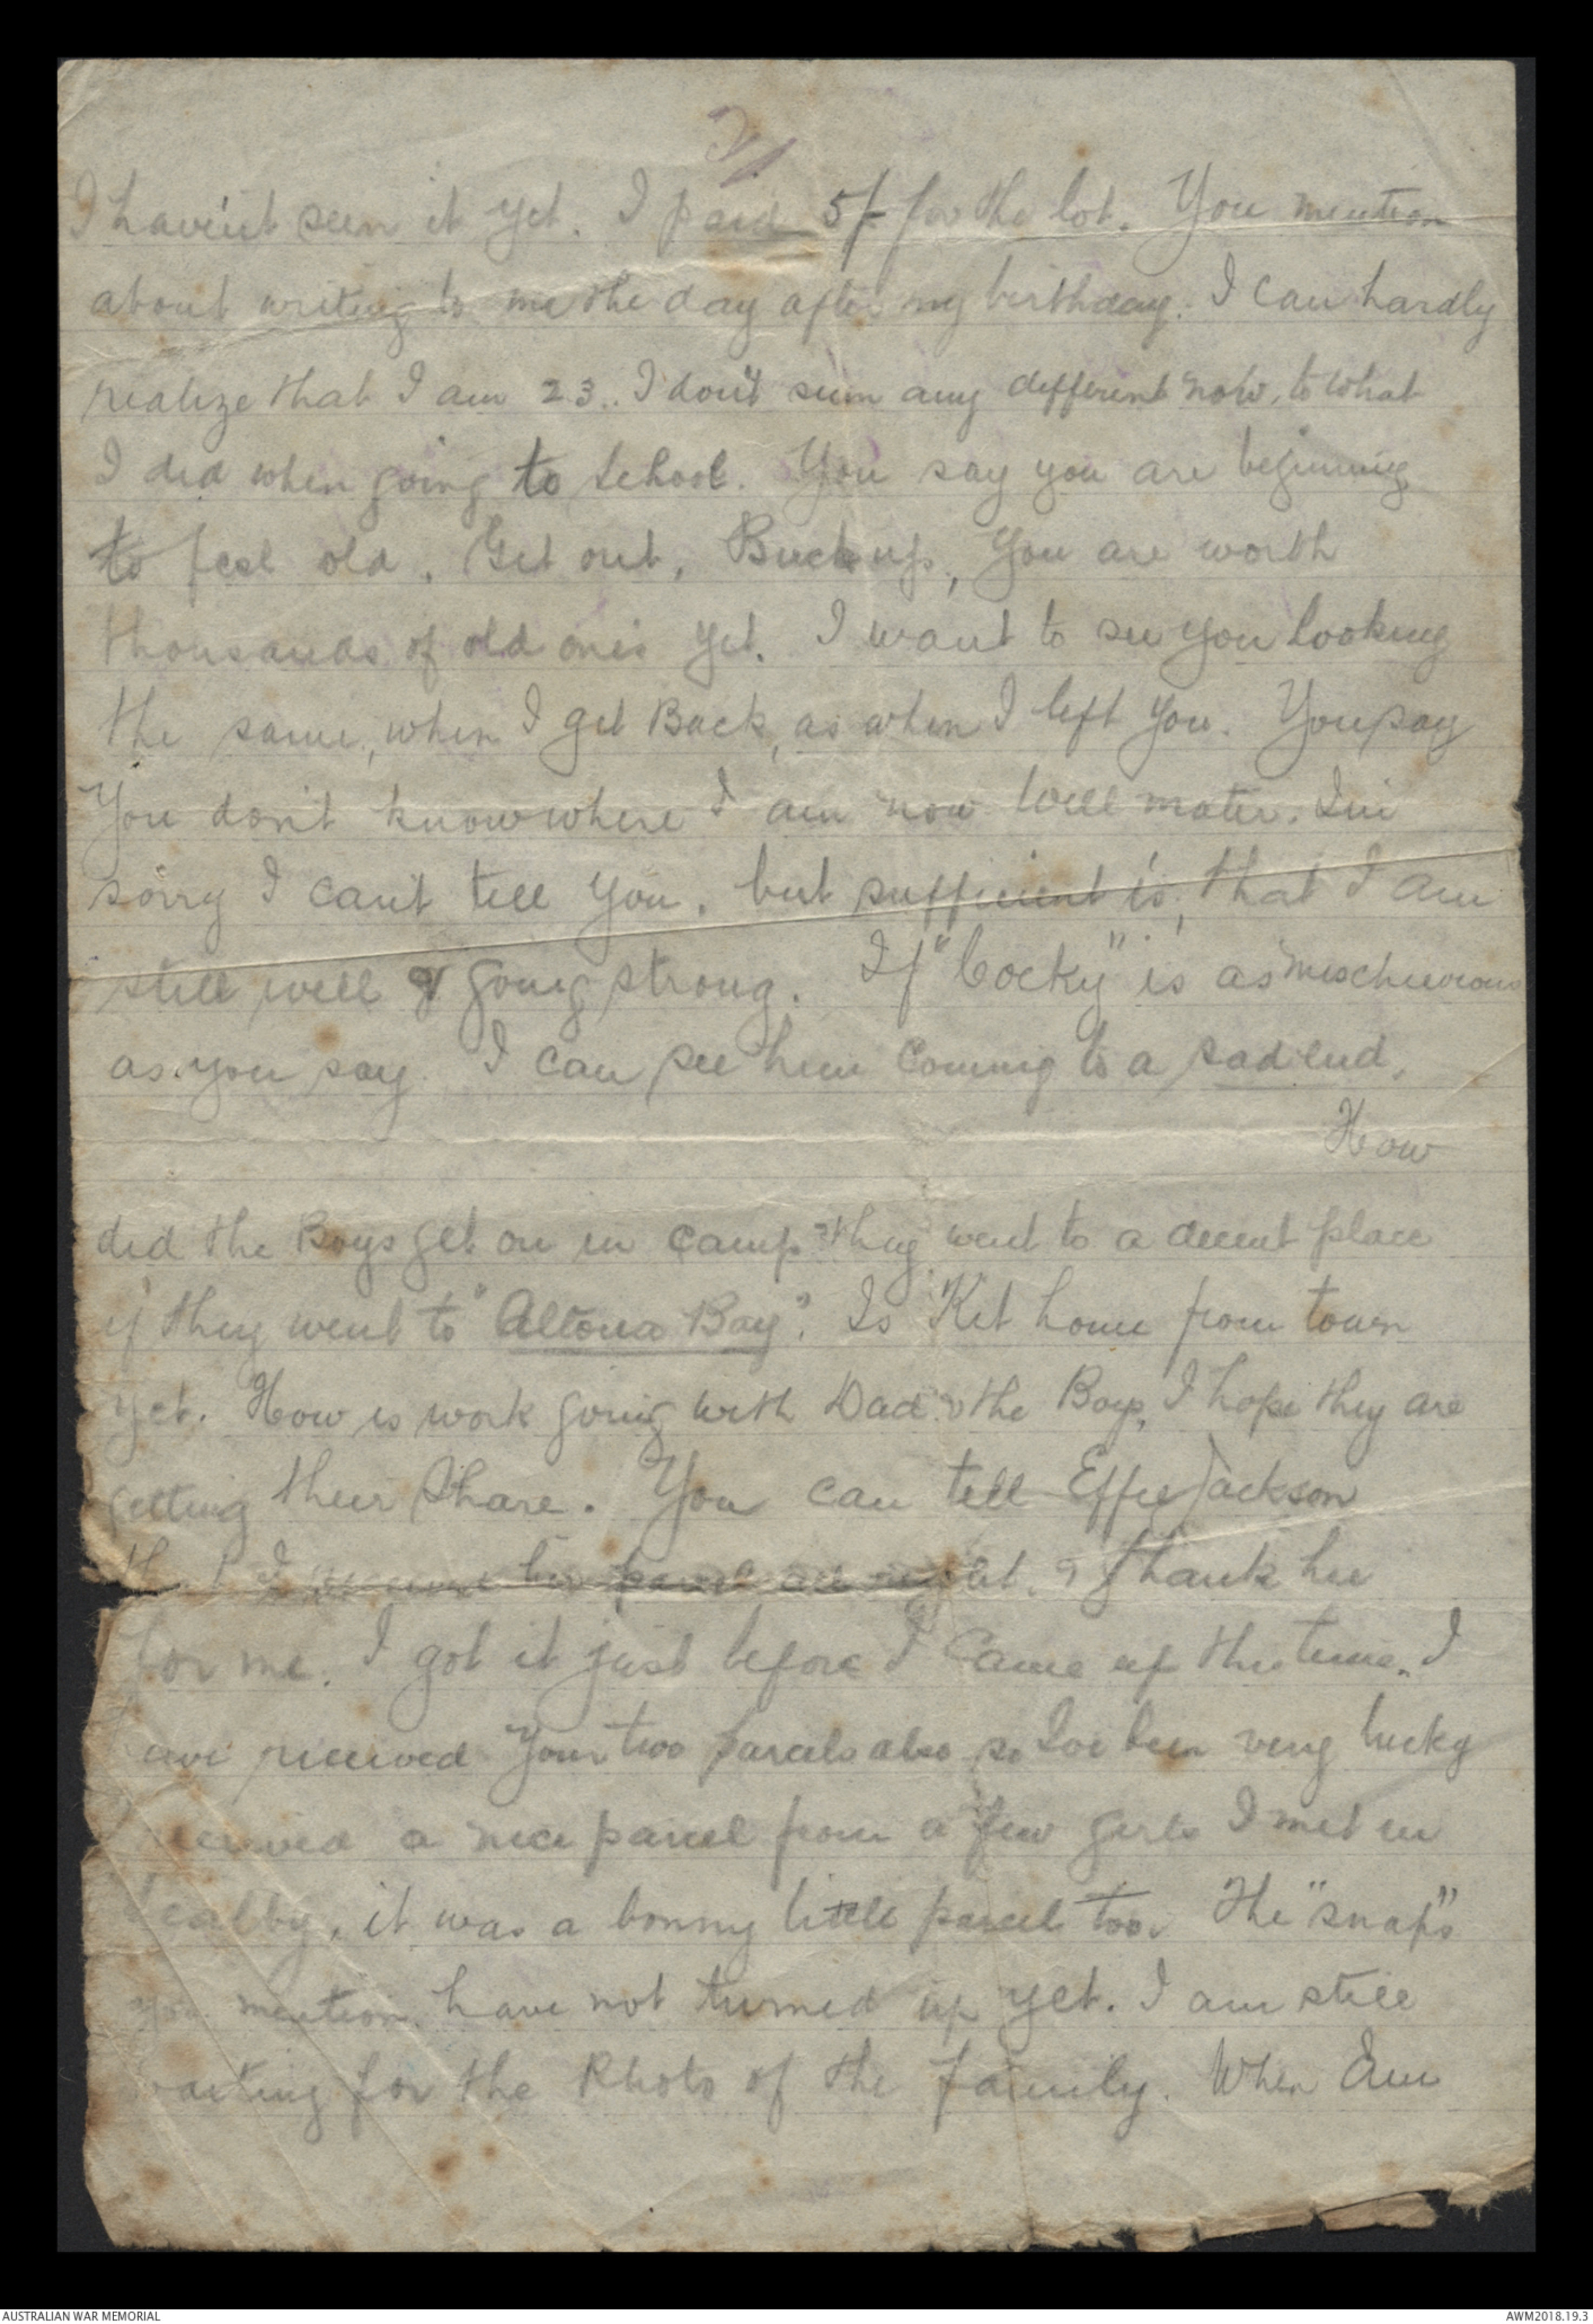 2/
I haven't seen it yet. I paid 5/- for the lot. You mention
about writing to me the day after my birthday. I can hardly
realize that I am 23.. I don't seem any different now, to what
I did when going to School. You say you are beginning
to feel old. Get out, Buck up, You are worth
thousands of old ones yet. I want to see you looking
the same, when I get Back, as when I left you. You say
You don't know where I am now Well mater. I'm
sorry I can't tell you, but sufficient is, that I am
still well & going strong. If "Cocky" is as mischievious
as you say. I can see him coming to a sad end.
How
did the Boys get on in camp they went to a decent place
if they went to "Altona Bay". Is Kit home from town
yet. How is work going with Dad & the Boys, I hope they are
getting their Share. You can tell Effie Jackson
that I received her parcel all right. & thank her
for me. I got it just before I came up this time. I
have received Your two parcels also so I've been very lucky
received a nice parcel from a few girls I met in
it was a bonny little parcel too. The "snaps"
you mention have not turned up yet. I am still
waiting for the Photo of the family. When Em
AUSTRALIAN WAR MEMORIAL
AWM2018.19.3